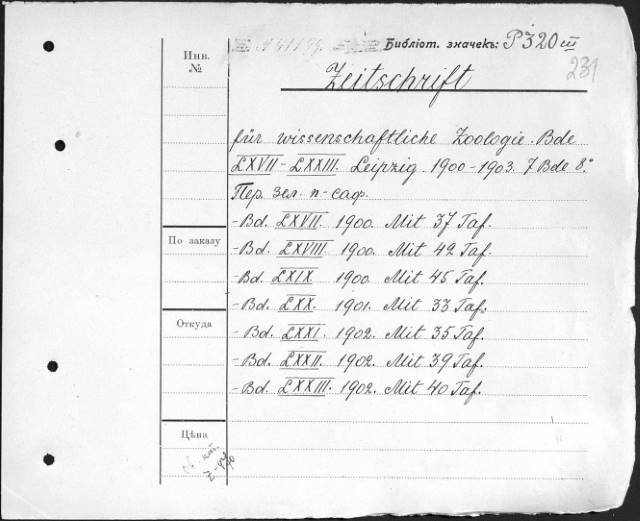 Библіот. значекъ: P 320 III
231
Инв. №
Zeitschrift
für wissenschaftliche Zoologie. Bde
LXVII – LXXIII. Leipzig. 1900-1903. 7 Bde 8.°
Пер. зел. п-саф.
- Bd. LXVII. 1900. Mit 37 Taf.
- Bd. LXVIII. 1900. Mit 42 Taf.
По заказу
- Bd. LXIX 1900 Mit 45 Taf.
- Bd. LXX. 1901. Mit 33 Taf.
Откуда
- Bd. LXXI. 1902. Mit 35 Taf.
- Bd. LXXII. 1902. Mit 39 Taf.
- Bd. LXXIII. 1902. Mit 40 Taf.
Цѣна